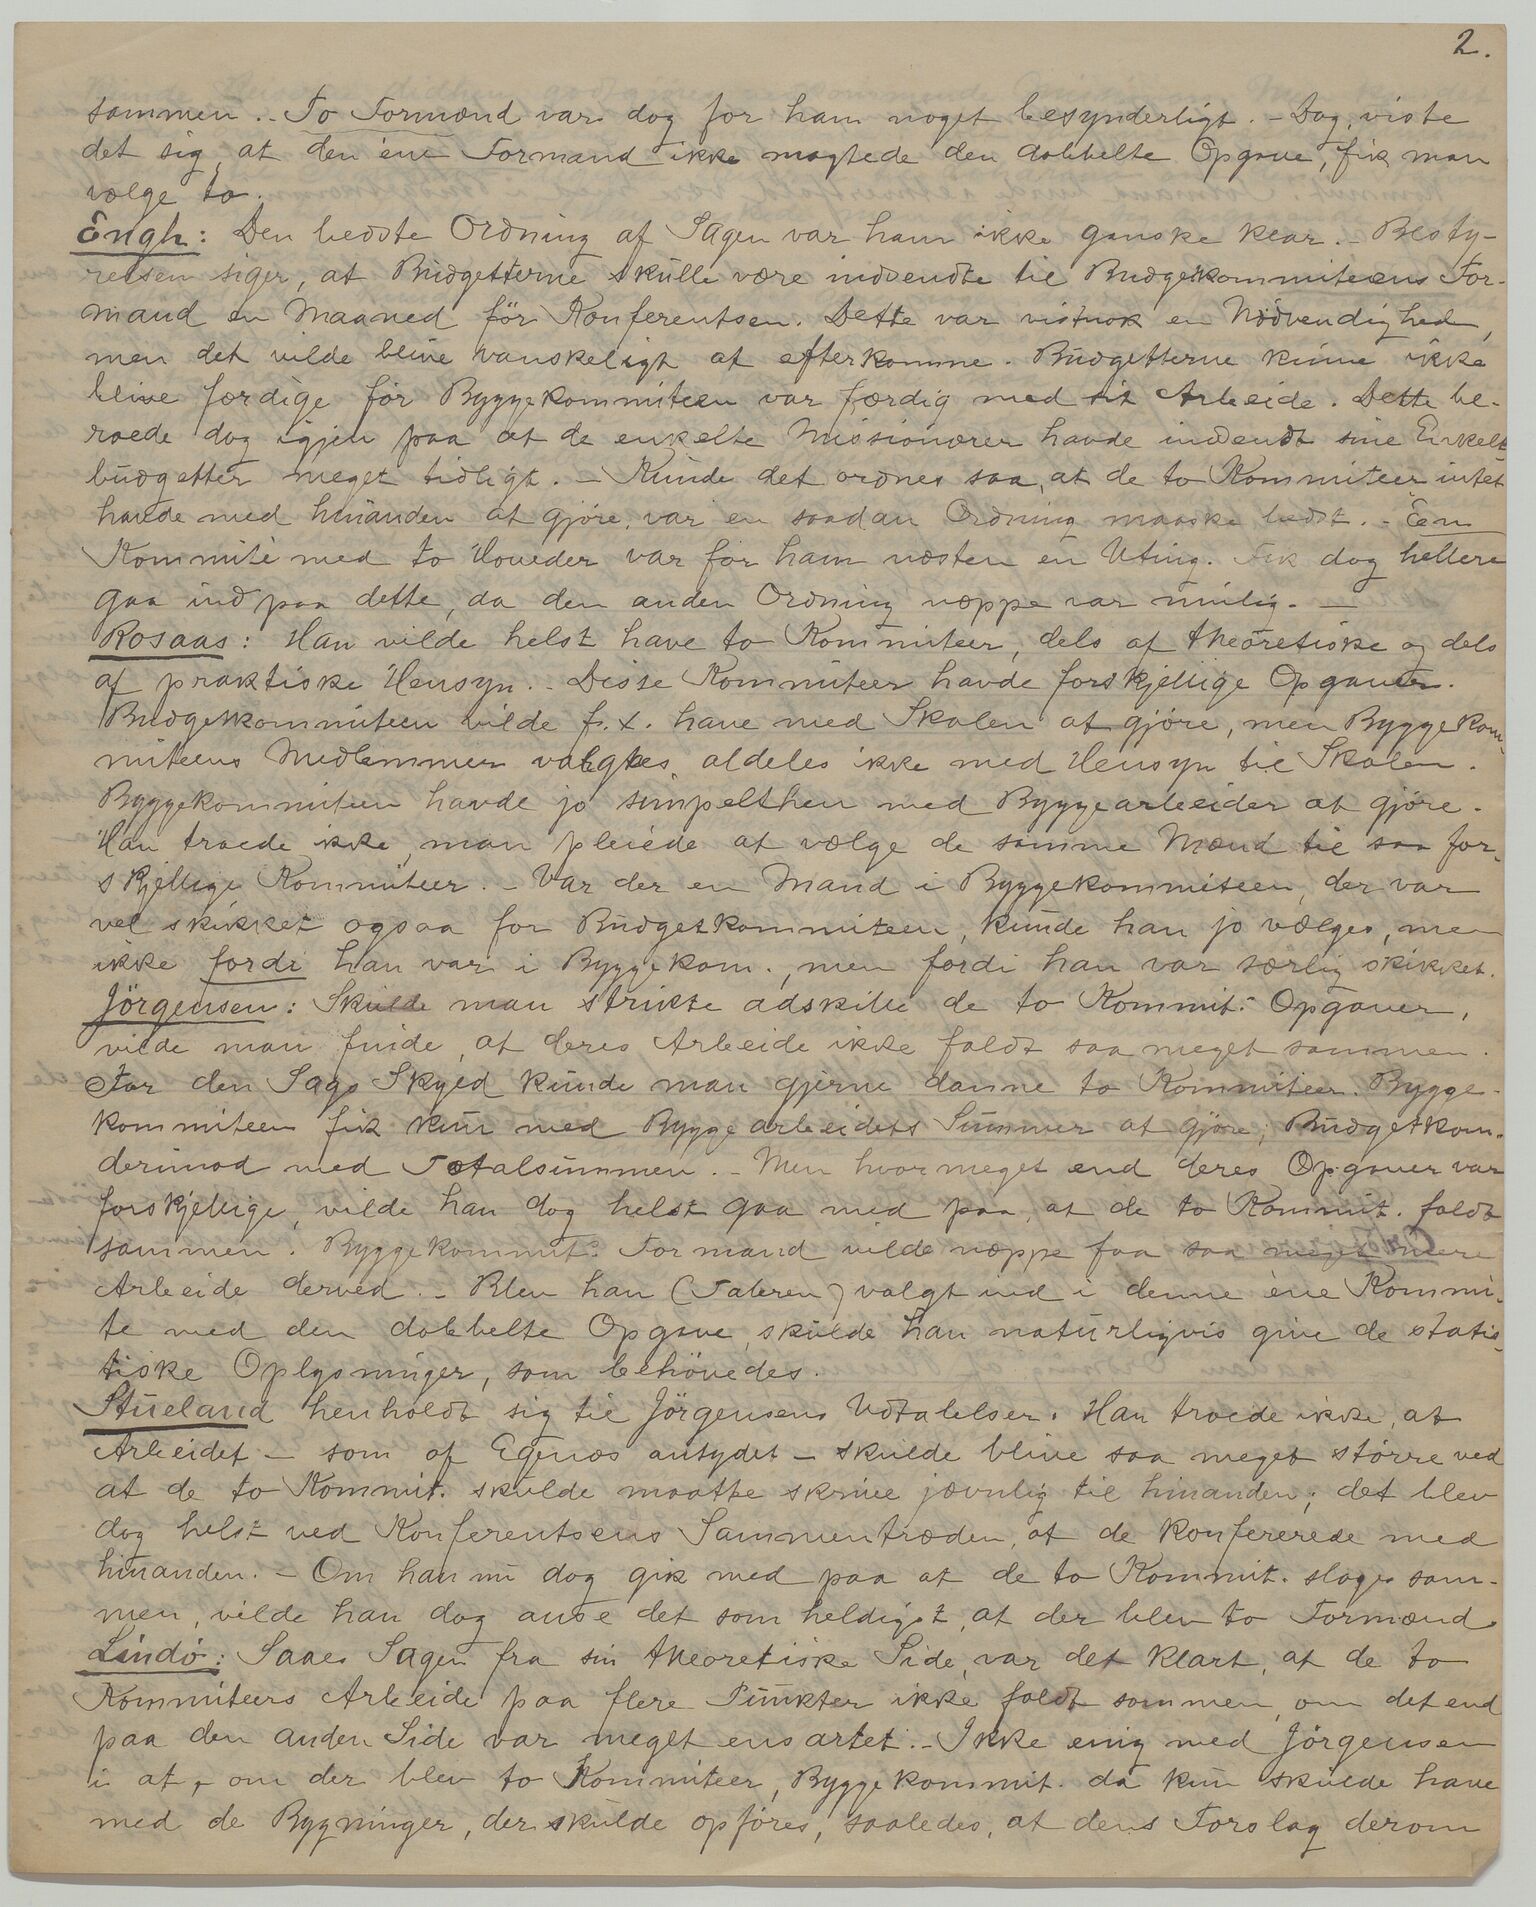 2.
sammen. - To Formænd var dog for ham noget besynderligt. - Dog, viste
det sig, at den ene Formand ikke magtede den dobbelte Opgave, fik man
vælge to.
Engh: Den bedste Ordning af Sagen var ham ikke ganske klar. - Besty-
relsen siger, at Budgetterne skulle være indsendte til Budgetkommiteens For-
mand en Maaned för Konferentsen. Dette var vistnok en Nödvendighed,
men det vilde blive vanskeligt at efterkomme. Budgetterne kunne ikke
blive færdige för Byggekommiteen var færdig med sit Arbeide. Dette be-
roede dog igjen paa at de enkelte Missionærer havde indsendt sine Enkelt
budgetter meget tidligt. - Kunde det ordnes saa, at de to Kommiteer intet
havde med hinanden at gjöre, var en saadan Ordning maaske bedst. - Èen
Kommité med to Hoveder var for ham næsten en Uting. Fik dog hellere
gaa ind paa dette, da den anden Ordning næppe var mulig. -
Rosaas: Han vilde helst have to Kommiteer, dels af theoretiske og dels
af praktiske Hensyn. - Disse Kommiteer havde forskjellige Opgaver.
Budgetkommiteen vilde f. x. have med Skolen at gjöre, men Byggekom-
miteens Medlemmer valgtes aldeles ikke med Hensyn til Skolen.
Byggekommiteen havde jo simpelthen med Byggearbeider at gjöre.
Han troede ikke, man pleiede at vælge de samme Mænd til saa for-
skjellige Kommiteer. - Var der en Mand i Byggekommiteen, der var
vel skikket ogsaa for Budgetkommiteen, kunde han jo vælges, men
ikke fordi han var i Byggekom., men fordi han var særlig skikket.
Jörgensen: Skulde man strikte adskille de to Kommit. Opgaver,
vilde man finde, at deres Arbeide ikke faldt saa meget sammen.
For den Sags Skyld kunde man gjerne danne to Kommiteer. Bygge-
kommiteen fik kun med Byggearbeidets Summer at gjöre; Budgetkom.
derimod med Totalsummen. - Men hvor meget end deres Opgaver var
forskjellige, vilde han dog helst gaa med paa, at de to Kommit. faldt
sammen. Byggekommit. Formand vilde næppe faa saa meget mere
Arbeide derved. - Blev han (Taleren) valgt ind i denne ene Kommi-
te med den dobbelte Opgave, skulde han naturligvis give de statis-
tiske Oplysninger, som behövedes.
Stueland henholdt sig til Jörgensens Udtalelser. Han troede ikke, at
Arbeidet - som af Egenæs antydet - skulde blive saa meget större ved
at de to Kommit. skulde maatte skrive jævnlig til hinanden; det blev
dog helst ved Konferentsens Sammentræden, at de konfererede med
hinanden. - Om han nu dog gik med paa at de to Kommit. sloges sam-
men, vilde han dog anse det som heldigst, at der blev to Formænd
Lindö: Saaes Sagen fra sin theoretiske Side, var det klart, at de to
Kommiteers Arbeide paa flere Punkter ikke faldt sammen, om det end
paa den anden Side var meget ensartet. - Ikke enig med Jörgensen
i at, om der blev to Kommiteer, Byggekommit. da kun skulde have
med de Bygninger, der skulde opföres, saaledes, at dens Forslag derom